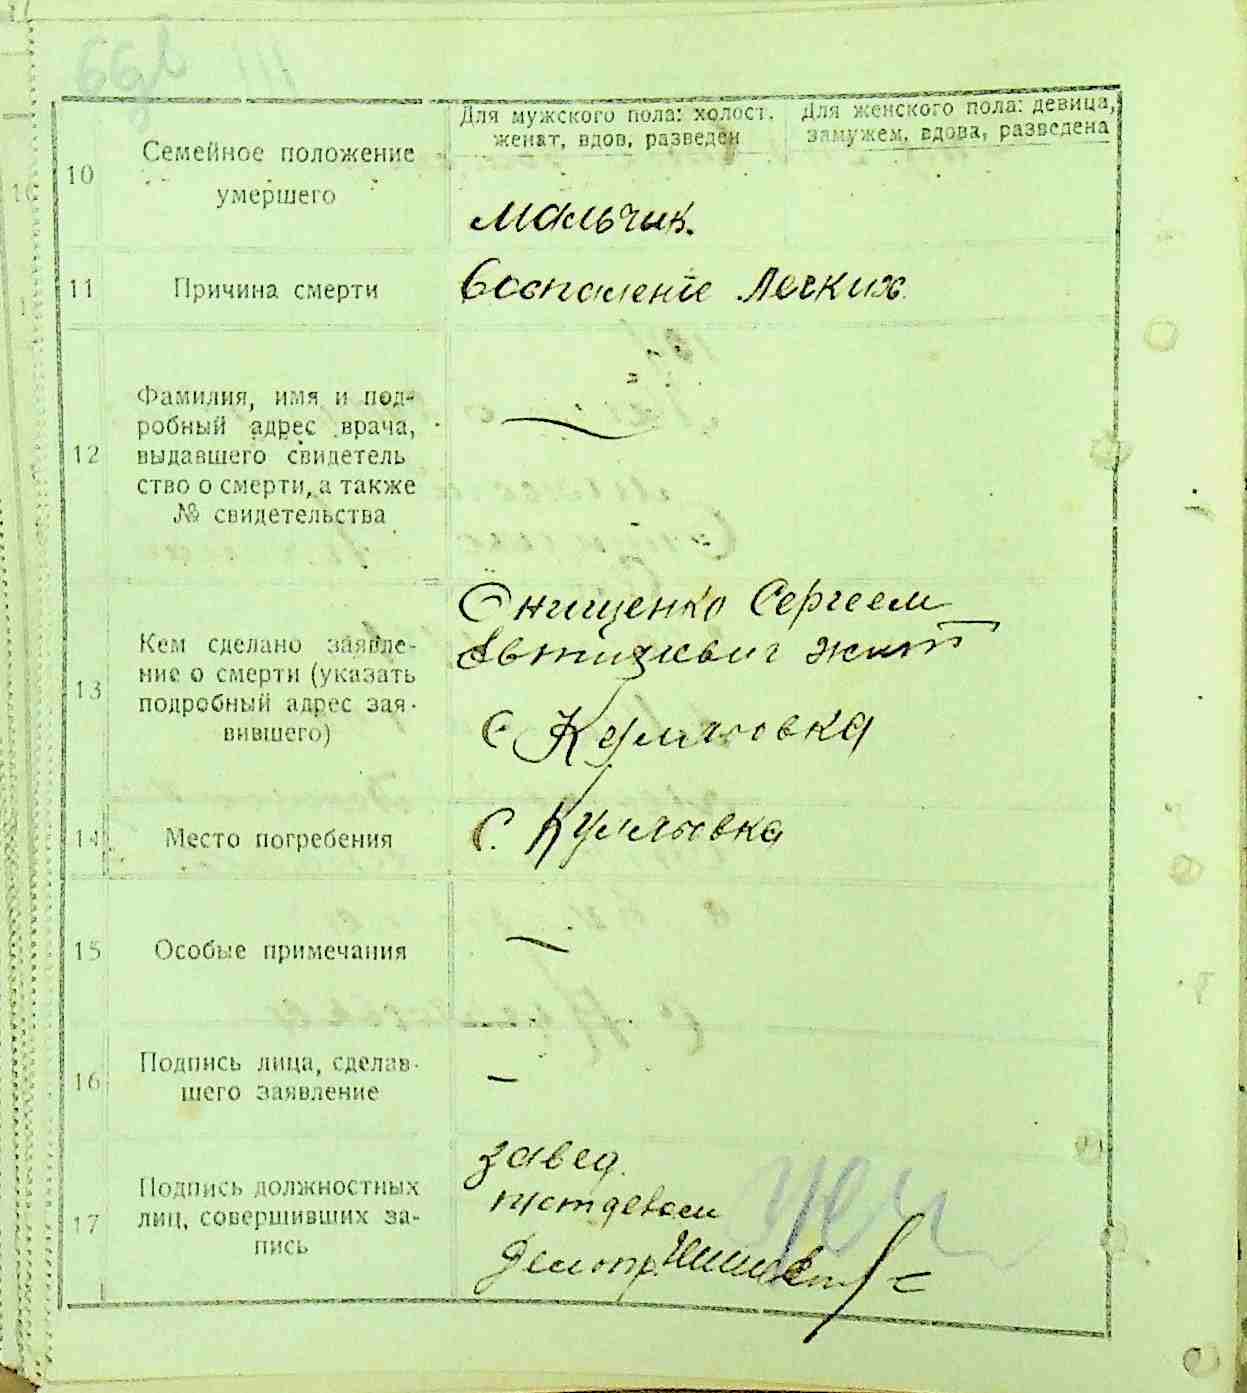 Для мужского пола: холост, женат, вдов, разведен
Для женского пола: девица, замужем, вдова, разведена
10
Семейное положение
умершего
мальчик.
11
Причина смерти
Воспаленіе Легких
12
Фамилия, имя и под-
робный адрес врача,
выдавшего свидетель
ство о смерти, а также
№ свидетельства
—
13
Кем сделано заявле-
ние о смерти (указать
подробный адрес зая-
вившего)
Онищенко Сергеем
жит
с
14
Место погребения
С.
15
Особые примечания
—
16
Подпись лица, сделав-
шего заявление
—
17
Подпись должностных
лиц, совершивших за-
пись
завед.
Делопр.